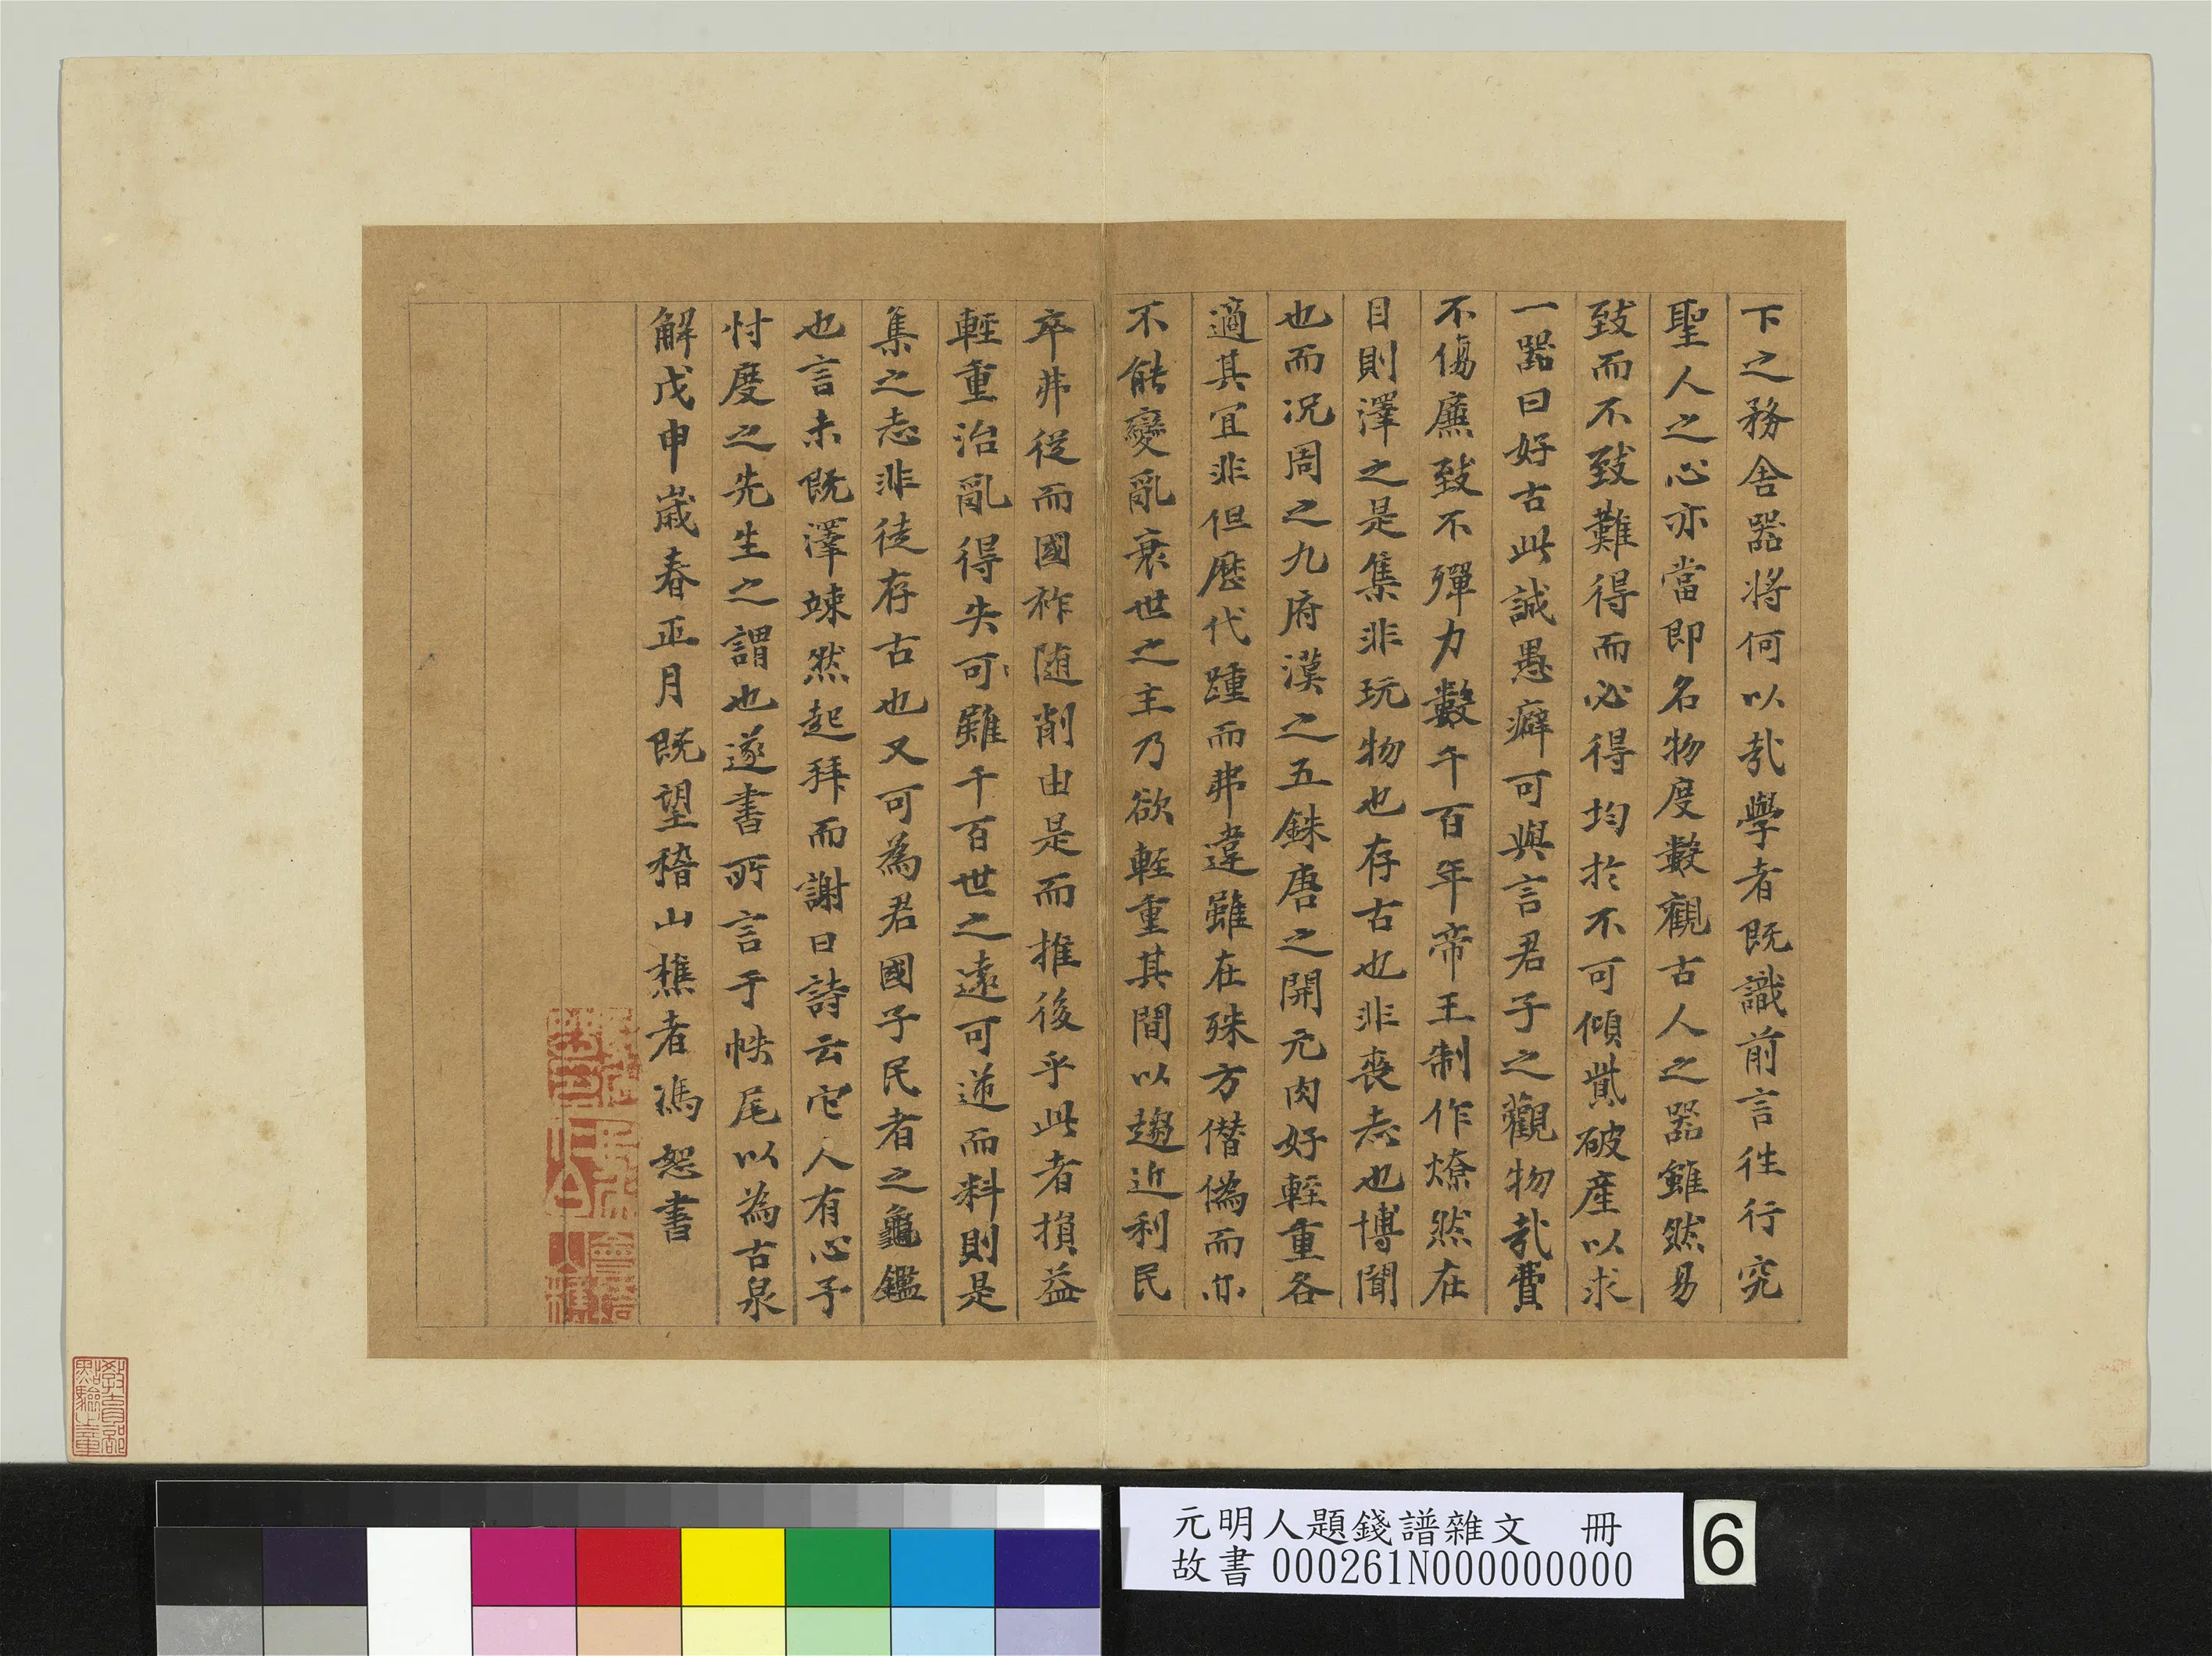 下之務舍器將何以哉學者既識前言往行究
聖人之心亦當即名物度數觀古人之器雖然易
致而不致難得而必得均於不可傾貲破產以求
一器曰好古此誠愚癖可與言君子之觀物哉費
不傷廉致不殫力數千百年帝王制作燎然在
目則澤之是集非玩物也存古也非喪志也博聞
也而況周之九府漢之五銖唐之開元肉好輕重各
適其宜非但歷代踵而弗違雖在殊方僭偽而亦
不能變亂衰世之主乃欲輕重其間以趨近利民
卒弗從而國祚随削由是而推後乎此者損益
輕重治亂得失可雖千百世之遠可逆而料則是
集之志非徒存古也又可為君國子民者之龜鑑
也言未既澤竦然起拜而謝曰詩云它人有心予
忖度之先生之謂也遂書所言于帙尾以為古泉
解戊申歲春正月既望稽山樵者馮恕書
會稽山樵
教育部點驗之章
元明人題錢譜雜文 冊
故書 000261N000000000
6